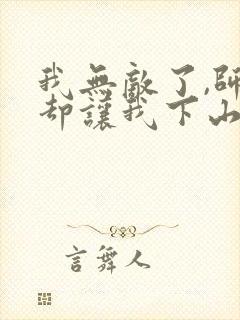 我無敵了,師
却讓我下山
言舞人